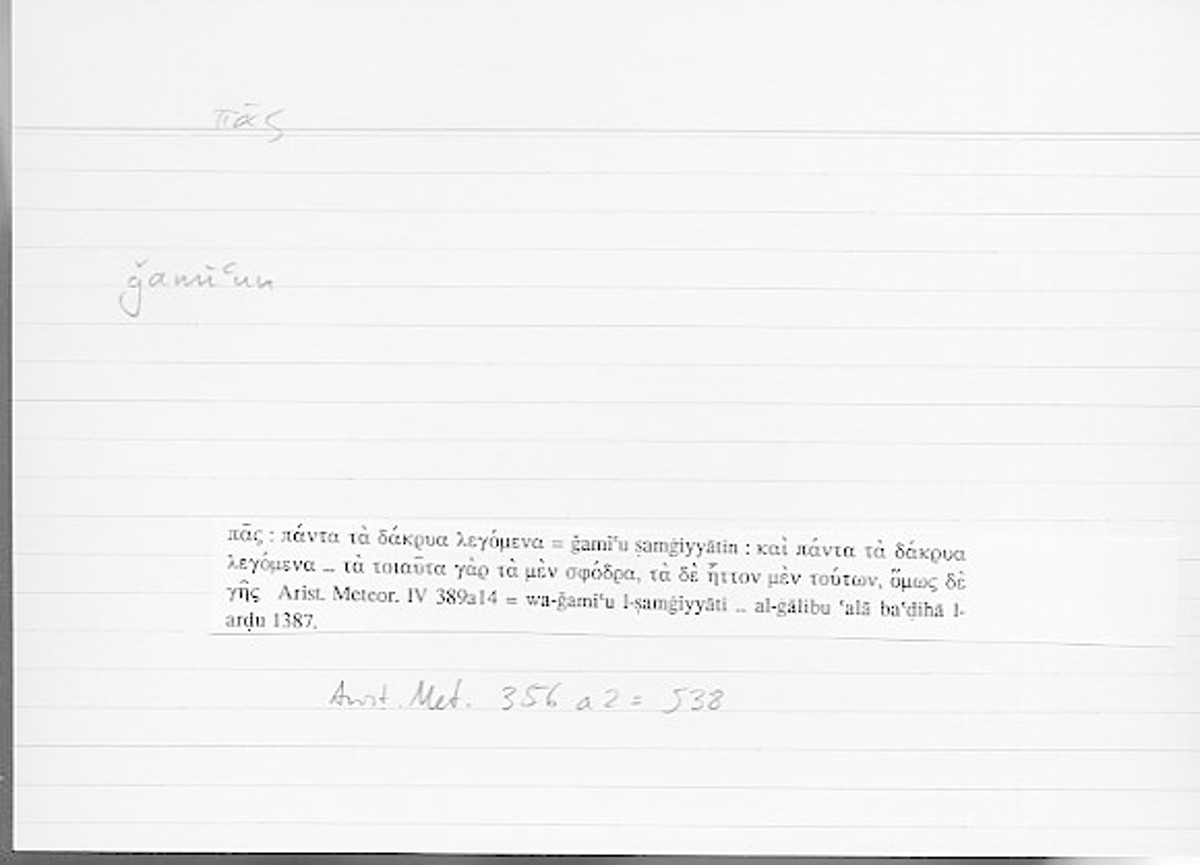 πᾶς
ǧamīʿun
πᾶς : πάντα τὰ δάκρυα λεγόμενα = ǧamīʿu ṣamġiyyātin : καὶ πάντα τὰ δάκρυα
λεγόμενα ... τὰ τοιαῦτα γὰρ τὰ μὲν σφόδρα, τὰ δὲ ἧττον μὲν τούτων, ὅμως δὲ
γῆς Arist. Meteor. IV 389a14 = wa-ǧamīʿu l-ṣamġiyyāti ... al-ġālibu ʿalā baʿḍihā l-
arḍu 1387.
Arist. Met. 356 a 2 = 538